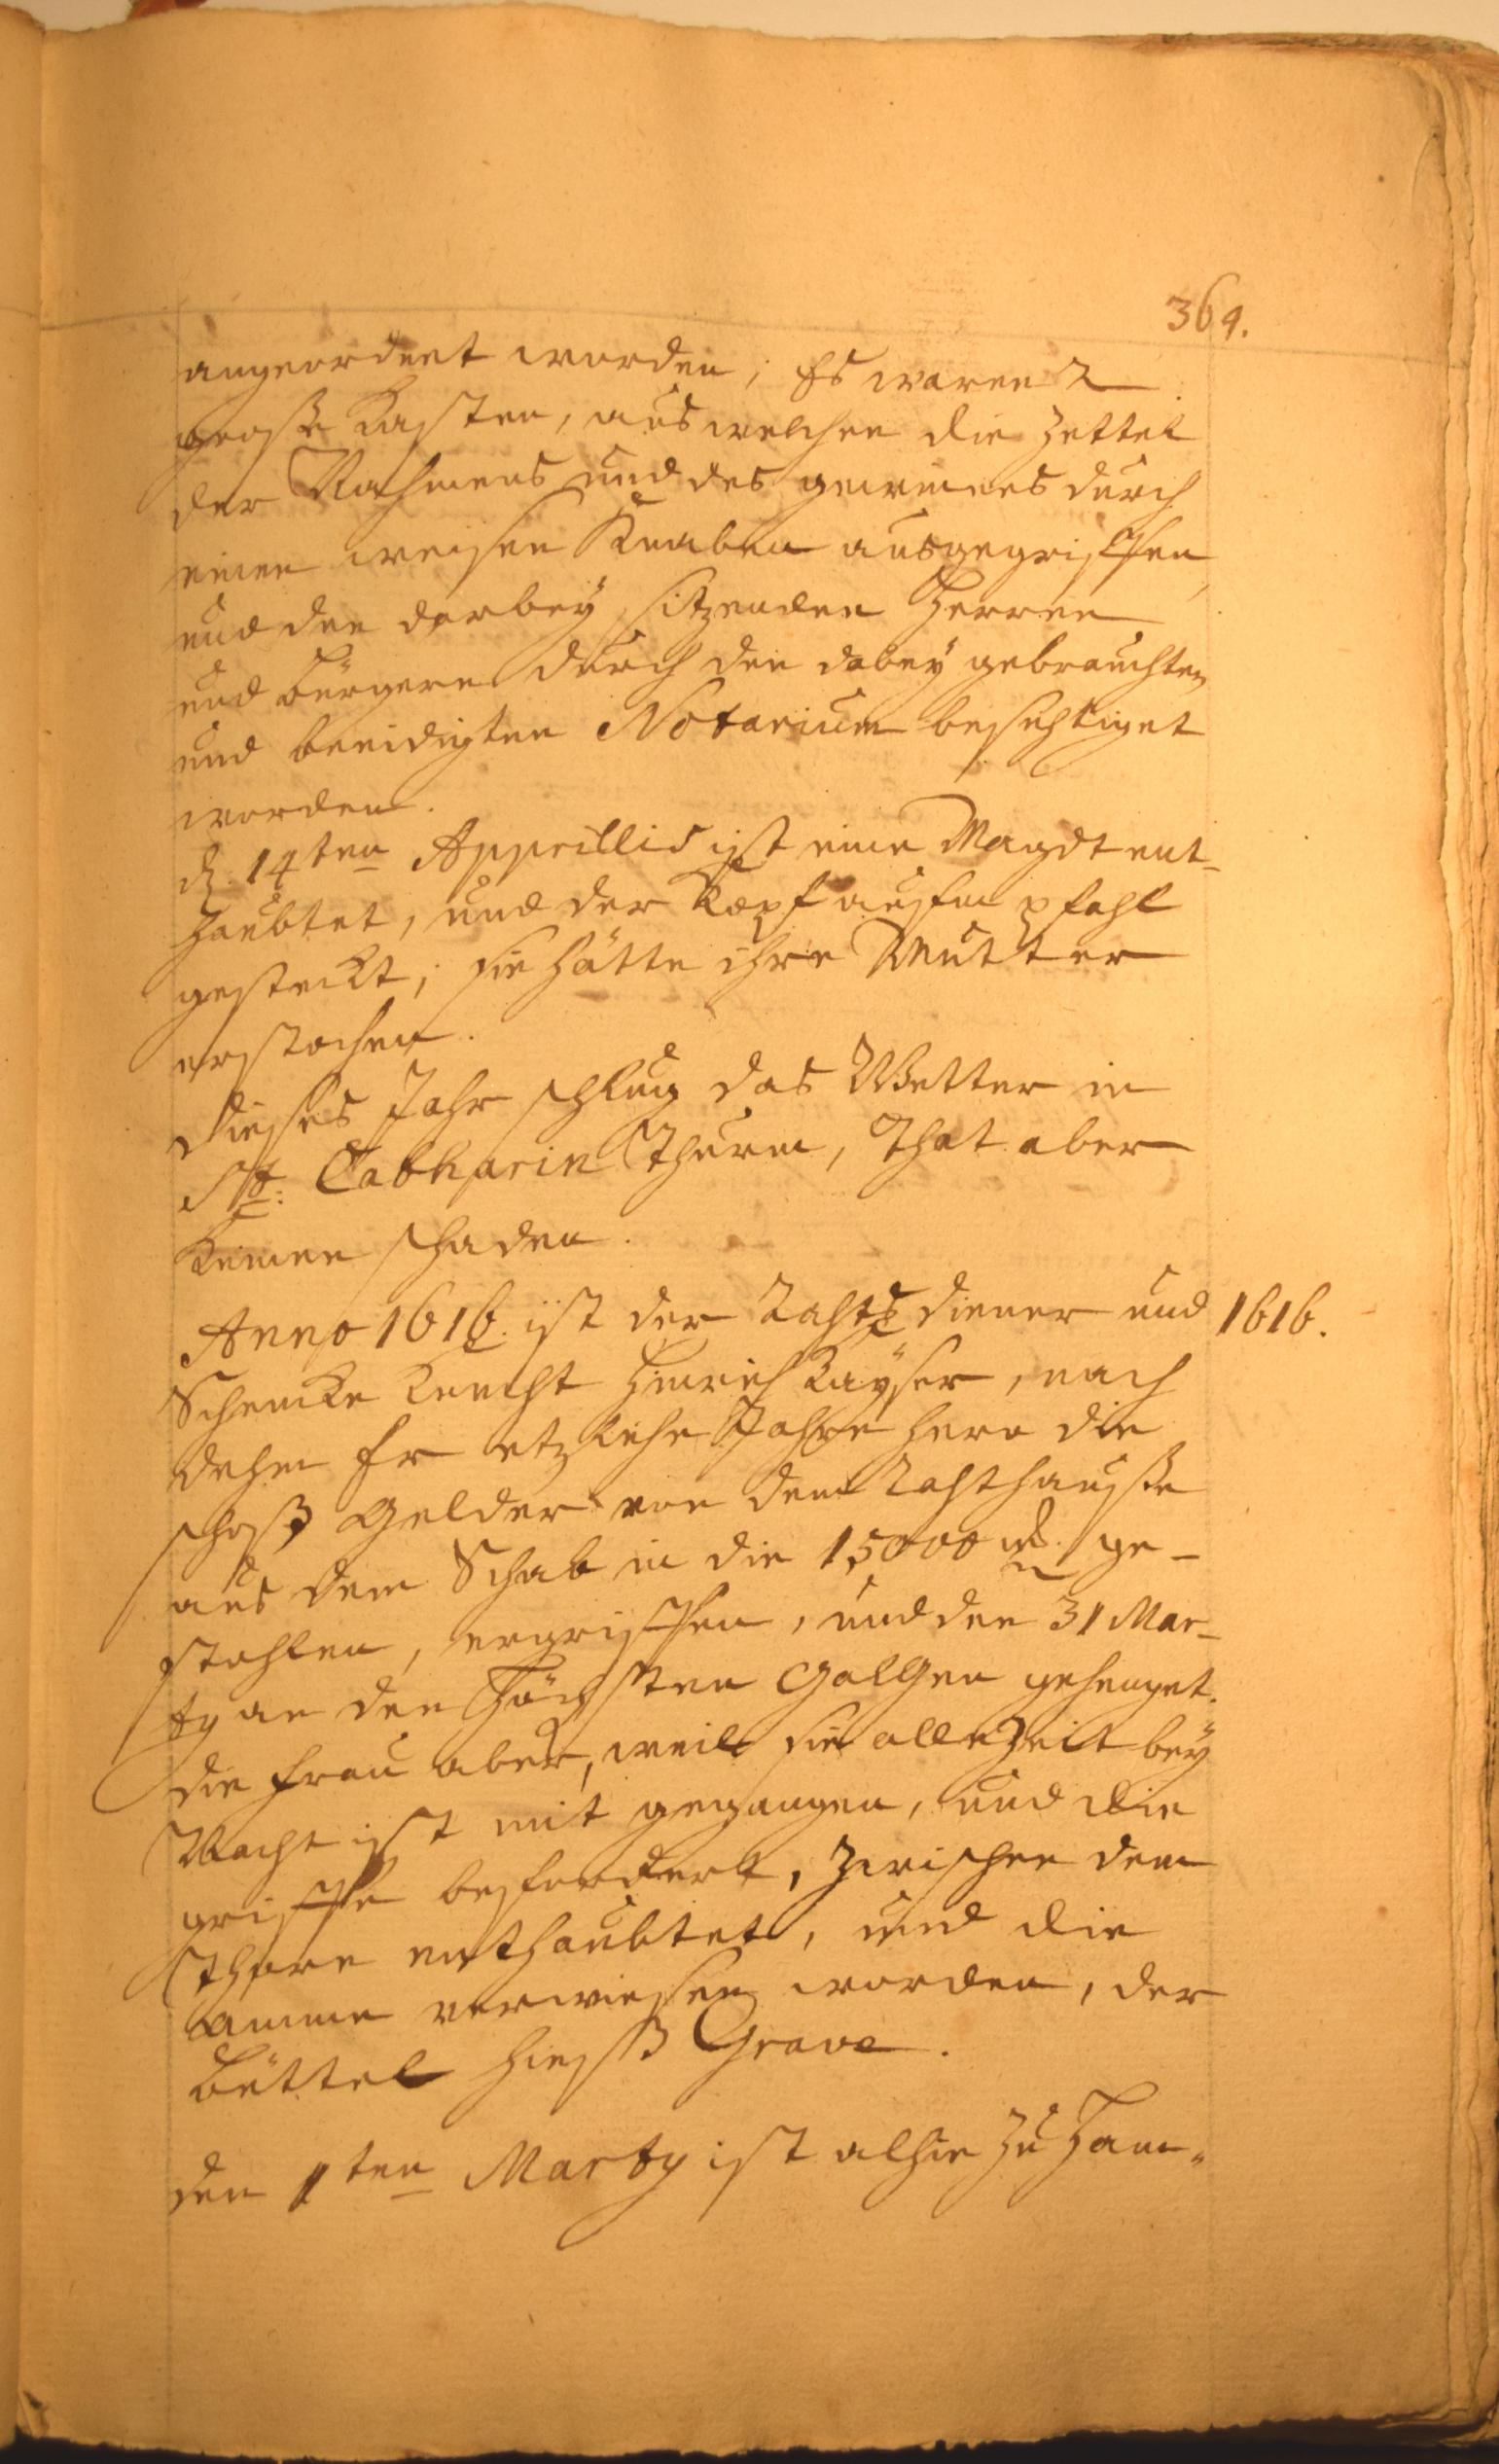 369.
angeordnet worden; Es waren 2
grosse Kasten, aus welchen die Zettel
der Nahmens und des gewinnes durch
einen weisen Knaben ausgegriffen
und den darbeÿ sitzenden Herren
und Bürgeren durch den dabeÿ gebrauchten
und beeidigten Notarium besichtiget
worden.
d. 14ten Apprillis ist eine Magdt ent-
haubtet, und der Kopf aufm pfahl
gesteckt; sie hätte ihre Mutter
erstochen.
Dieses Jahr schlug das Wetter in
St: Cathharin Thurm, That aber
keinen schaden.
Anno 1616. ist der Rahts diener und
1616.
Schencke Knecht Hinrich Kaÿser, nach
dehm Er etzliche Jahre hero die
schoß Gelder von dem Rahthausse
aus dem Schab in die 15000 mk. ge-
stohlen, ergriffen, und den 31 Mar-
ty an den höchsten Galgen gehenget.
die Frau aber, weil sie alle Zeit beÿ
Nacht ist mit gegangen, und die
griffe befordert, zwischen dem
Thore enthaubtet, und die
amme verwiesen worden, der
Büttel hiess Grave.
den 1ten Marty ist alhie zu Ham-